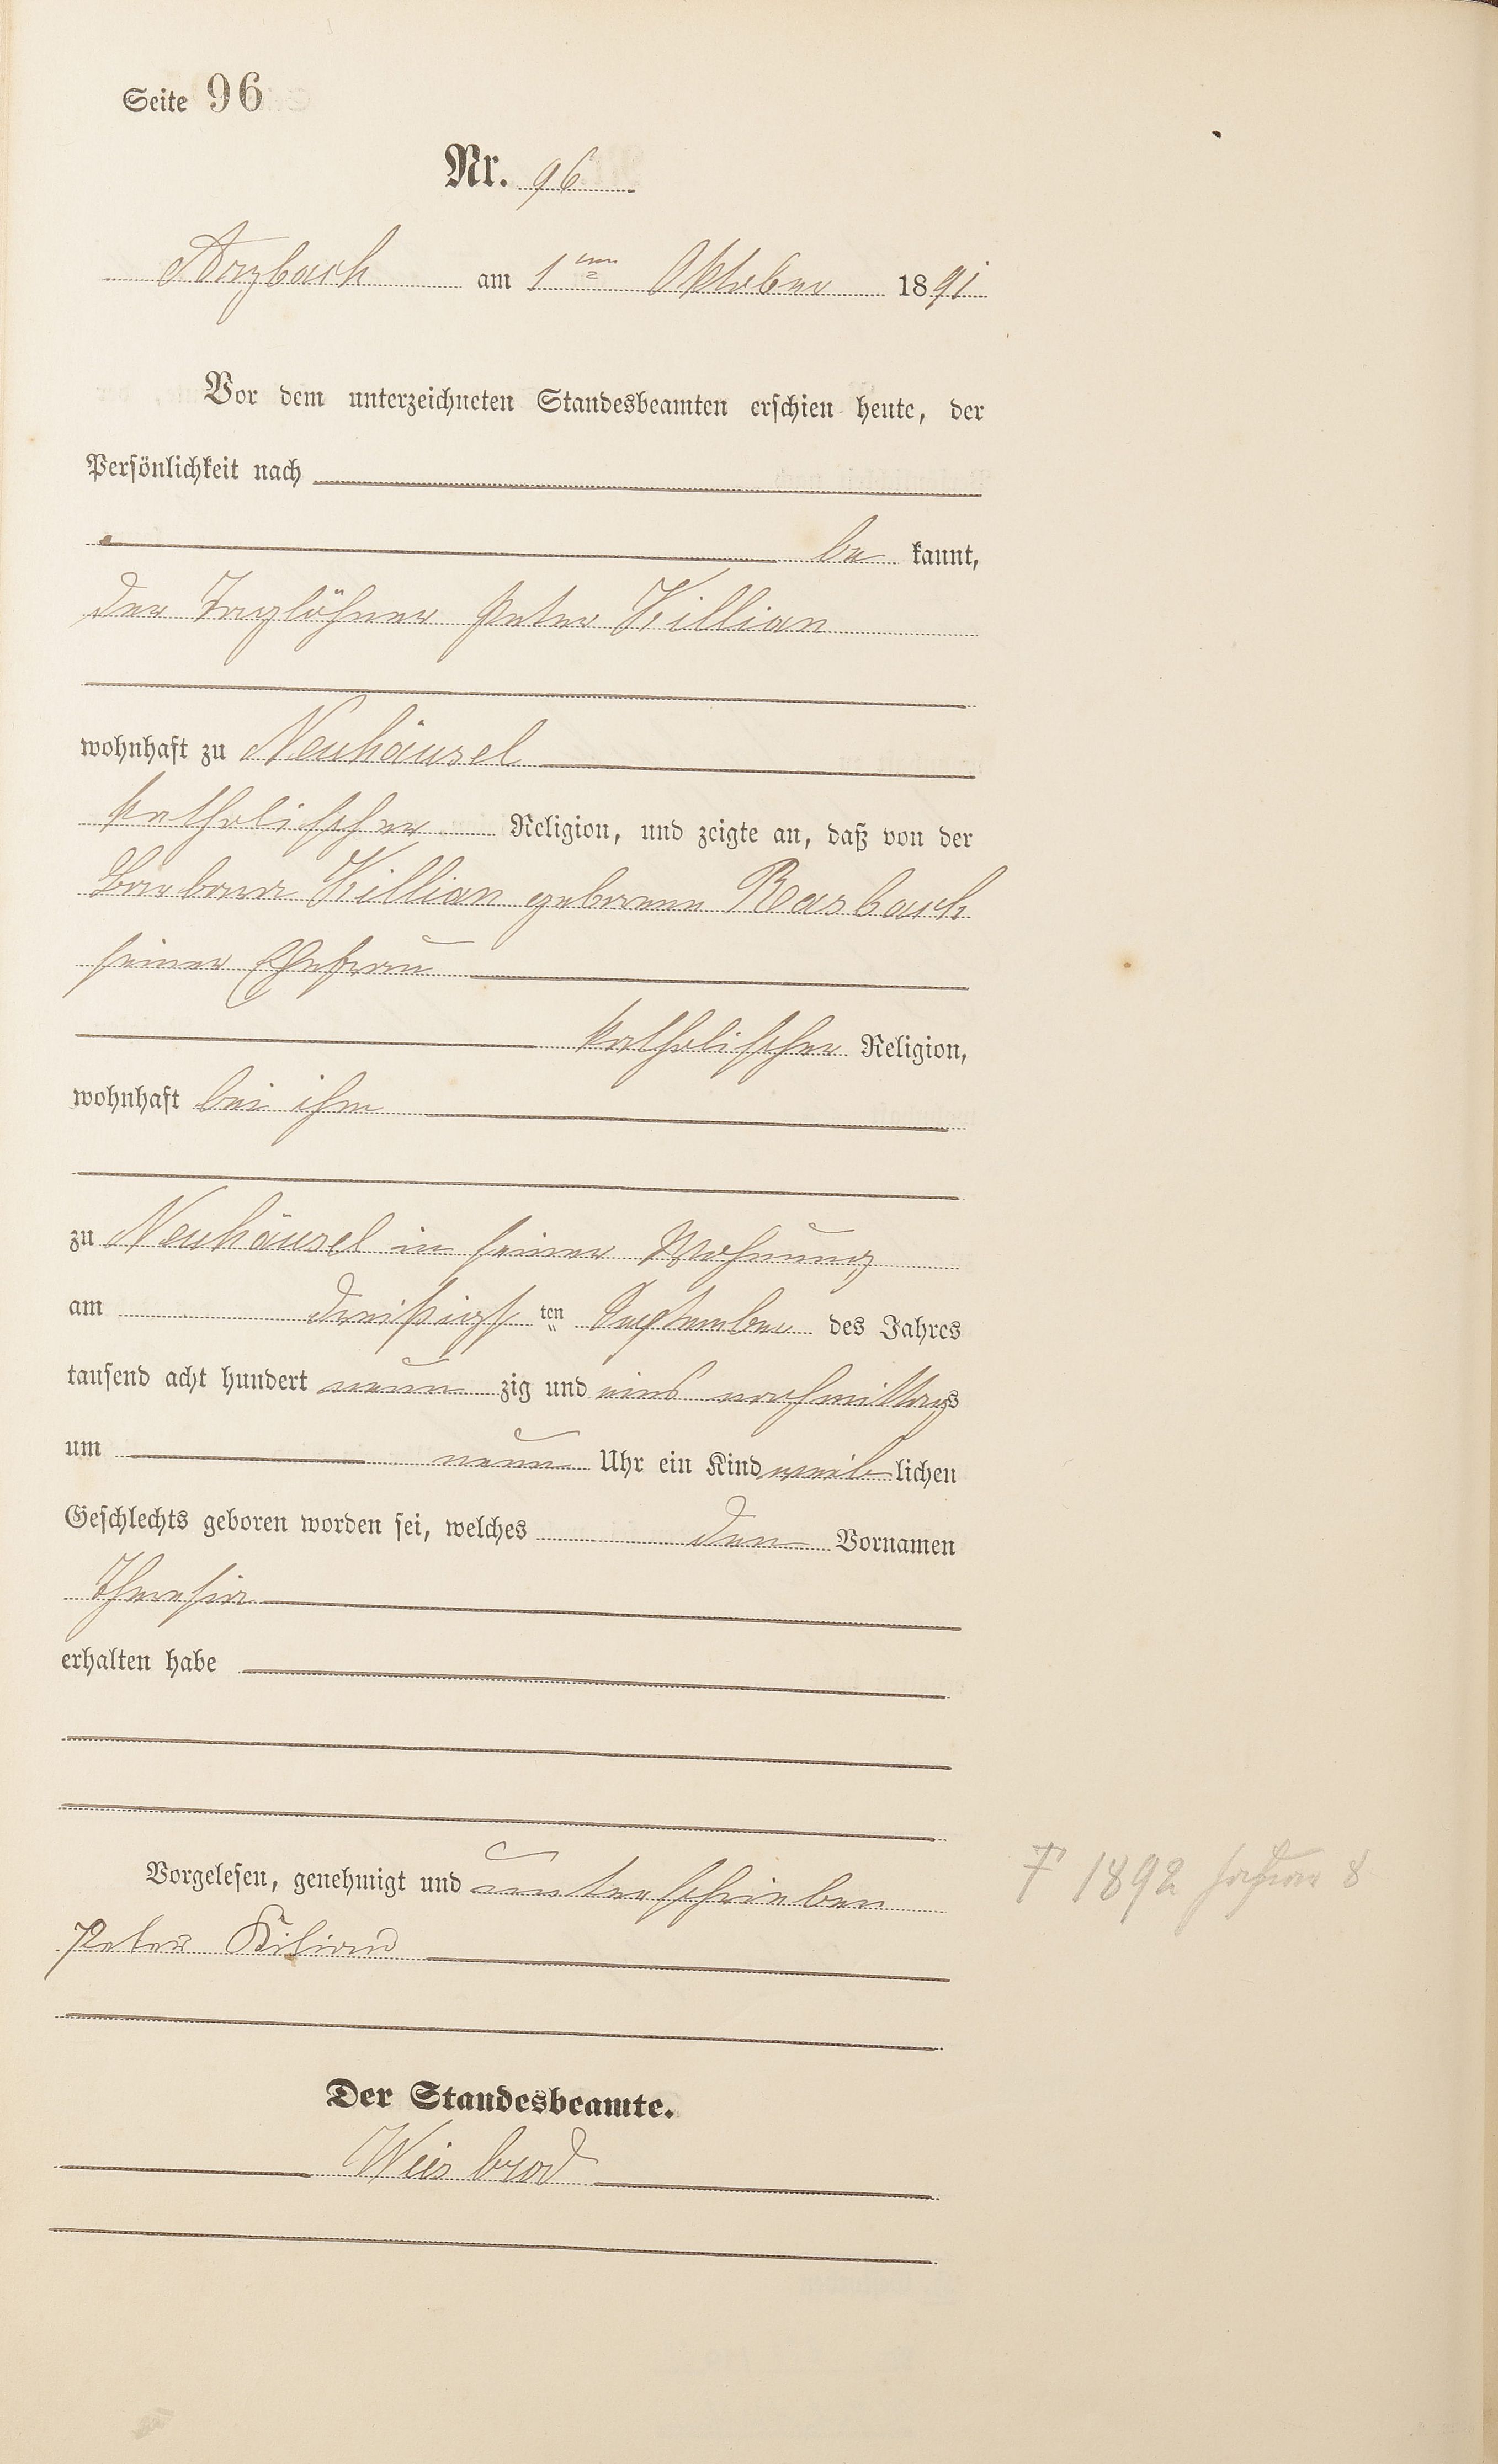 Seite 96
Nr. 96
Arzbach am 1ten Oktober 1891
Vor dem unterzeichneten Standesbeamten erschien heute, der
Persönlichkeit nach
be kannt,
der Taglöhner Peter Killian
wohnhaft zu Neuhäusel
katholischer Religion, und zeigte an, daß von der
Barbara Killian geborene Rasbach
seiner Ehefrau
katholischer Religion,
wohnhaft bei ihm
zu Neuhäusel in seiner Wohnung
am dreißigs ten September des Jahres
tausend acht hundert neun zig und eins nachmittags
um neun Uhr ein Kind weib lichen
Geschlechts geboren worden sei, welches den Vornamen
Theresia
erhalten habe
Vorgelesen, genehmigt und unterschrieben
† 1892 Januar 8
Peter Kilian
Der Standesbeamte.
Weisbrod